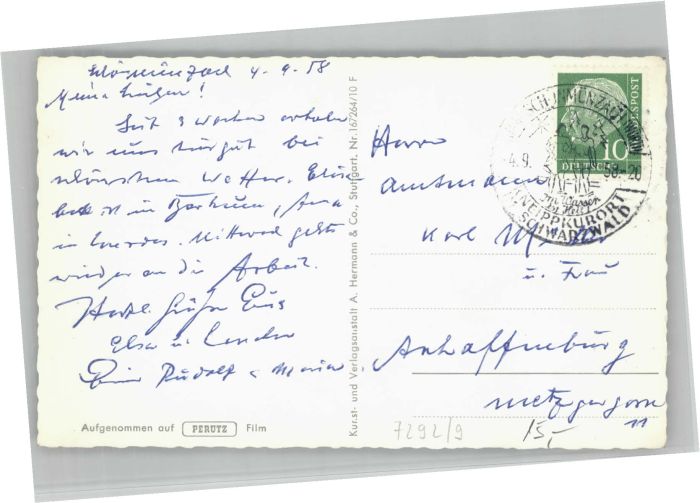 Schönmünzach 4.9.58
Meine Lieben!
Seit 3 Wochen erholen
wir uns hier gut bei
schönstem Wetter.
ist in
in Lourdes. Mittwoch geht's
wieder an die Arbeit.
Herzl. Grüße Euch
Elsa u.
Rudolf u Maria
Aufgenommen auf PERUTZ Film
Kunst- und Verlagsanstalt A. Hermann & Co., Stuttgart. Nr. 167264/10 F
10
DEUTSCHE BUNDESPOST
-4.9. 58-20
KNEIPPKURORT
SCHWARZWALD
Herrn
Amtmann
Karl
u. Frau
Aschaffenburg
Metzgergasse
11
7292/9
15,-